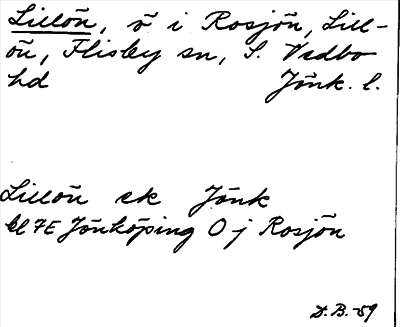 Lillön, ö i Rosjön, Lill-
ön, Flisby sn, S. Vedbo
hd Jönk. l.
Lillön ek Jönk
bl 7E Jönköping O j Rosjön
D.B.-59